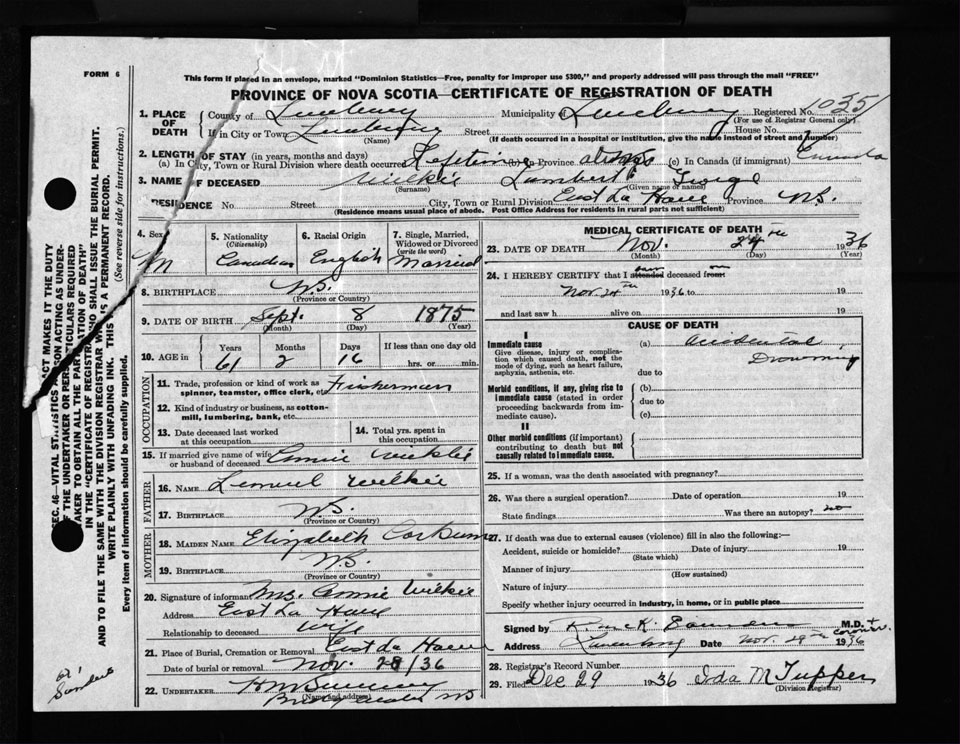 FORM 6
This form if placed in an envelope, marked "Dominion Statistics—Free, penalty for improper use $300," and properly addressed will pass through the mail "FREE"
PROVINCE OF NOVA SCOTIA—CERTIFICATE OF REGISTRATION OF DEATH
1. PLACE OF DEATH County of Lunenburg Municipality of Lunenburg Registered No. 1035
(For use of Registrar General only)
If in City or Town Lunenburg Street House No.
(Name) (If death occurred in a hospital or institution, give the name instead of street and number)
2. LENGTH OF STAY (in years, months and days)
(a) In City, Town or Rural Division where death occurred Lifetime (b) in Province always (c) In Canada (if immigrant) Canada
3. NAME OF DECEASED Wilkie Lambert George
(Surname) (Given name or names)
RESIDENCE No. Street City, Town or Rural Division East La Have Province N.S.
(Residence means usual place of abode. Post Office Address for residents in rural parts not sufficient)
4. Sex M
5. Nationality (Citizenship) Canadian
6. Racial Origin English
7. Single, Married, Widowed or Divorced (write the word) Married
8. BIRTHPLACE N.S.
(Province or Country)
9. DATE OF BIRTH Sept. 8 1875
(Month) (Day) (Year)
10. AGE in Years Months Days If less than one day old
61 2 16 hrs. or min.
OCCUPATION
11. Trade, profession or kind of work as spinner, teamster, office clerk, etc. Fisherman
12. Kind of industry or business, as cotton-mill, lumbering, bank, etc.
13. Date deceased last worked at this occupation
14. Total yrs. spent in this occupation
15. If married give name of wife or husband of deceased Annie Wilkie
FATHER
16. NAME Lemuel Wilkie
17. BIRTHPLACE N.S.
(Province or Country)
MOTHER
18. MAIDEN NAME Elizabeth Corkum
19. BIRTHPLACE N.S.
(Province or Country)
20. Signature of informant Mrs. Annie Wilkie
Address East La Have
Relationship to deceased Wife
21. Place of Burial, Cremation or Removal East La Have
Date of burial or removal Nov. 28/36
22. UNDERTAKER
(Name and address)
Bridgewater NS
MEDICAL CERTIFICATE OF DEATH
23. DATE OF DEATH Nov. 24th 1936
(Month) (Day) (Year)
24. I HEREBY CERTIFY that I attended deceased from
Nov. 24th 1936 to 19
and last saw h alive on 19
CAUSE OF DEATH
I
Immediate cause
Give disease, injury or complication which caused death, not the mode of dying, such as heart failure, asphyxia, asthenia, etc.
(a) accidental
Drowning
due to
Morbid conditions, if any, giving rise to immediate cause (stated in order proceeding backwards from immediate cause).
(b)
due to
(c)
II
Other morbid conditions (if important) contributing to death but not causally related to immediate cause.
25. If a woman, was the death associated with pregnancy?
26. Was there a surgical operation? Date of operation 19
State findings Was there an autopsy? no
27. If death was due to external causes (violence) fill in also the following:—
Accident, suicide or homicide? Date of injury 19
(State which)
Manner of injury
(How sustained)
Nature of injury
Specify whether injury occurred in industry, in home, or in public place
Signed by M.D. + Coroner
Address Lunenburg Date Nov. 29th 1936
28. Registrar's Record Number
29. Filed Dec 29 1936 Ida M Tupper
(Division Registrar)
SEC. 46—VITAL STATISTICS ACT MAKES IT THE DUTY
OF THE UNDERTAKER OR PERSON ACTING AS UNDER-
TAKER TO OBTAIN ALL THE PARTICULARS REQUIRED
IN THE "CERTIFICATE OF REGISTRATION OF DEATH"
AND TO FILE THE SAME WITH THE DIVISION REGISTRAR WHO SHALL ISSUE THE BURIAL PERMIT.
WRITE PLAINLY WITH UNFADING INK. THIS IS A PERMANENT RECORD.
Every item of information should be carefully supplied. (See reverse side for instructions.)